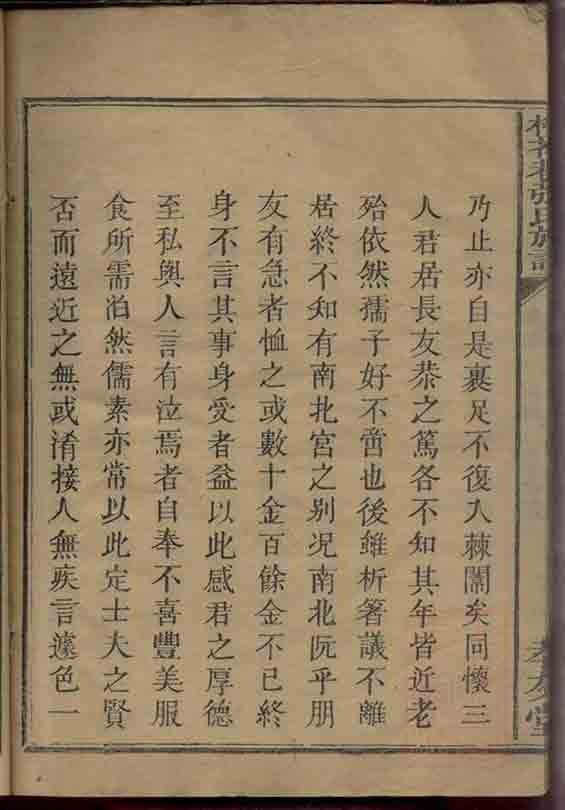 張氏族譜
乃止亦自是裹足不復入棘闈矣同懷三
人君居長友恭之篤各不知其年皆近老
殆依然孺子好不啻也後雖析箸議不離
居終不知有南北宮之别况南北阮乎朋
友有急者恤之或數十金百餘金不已終
身不言其事身受者益以此感君之厚德
至私與人言有泣焉者自奉不喜豐美服
食所需泊然儒素亦常以此定士夫之賢
否而遠近之無或淆接人無疾言遽色一
孝友堂